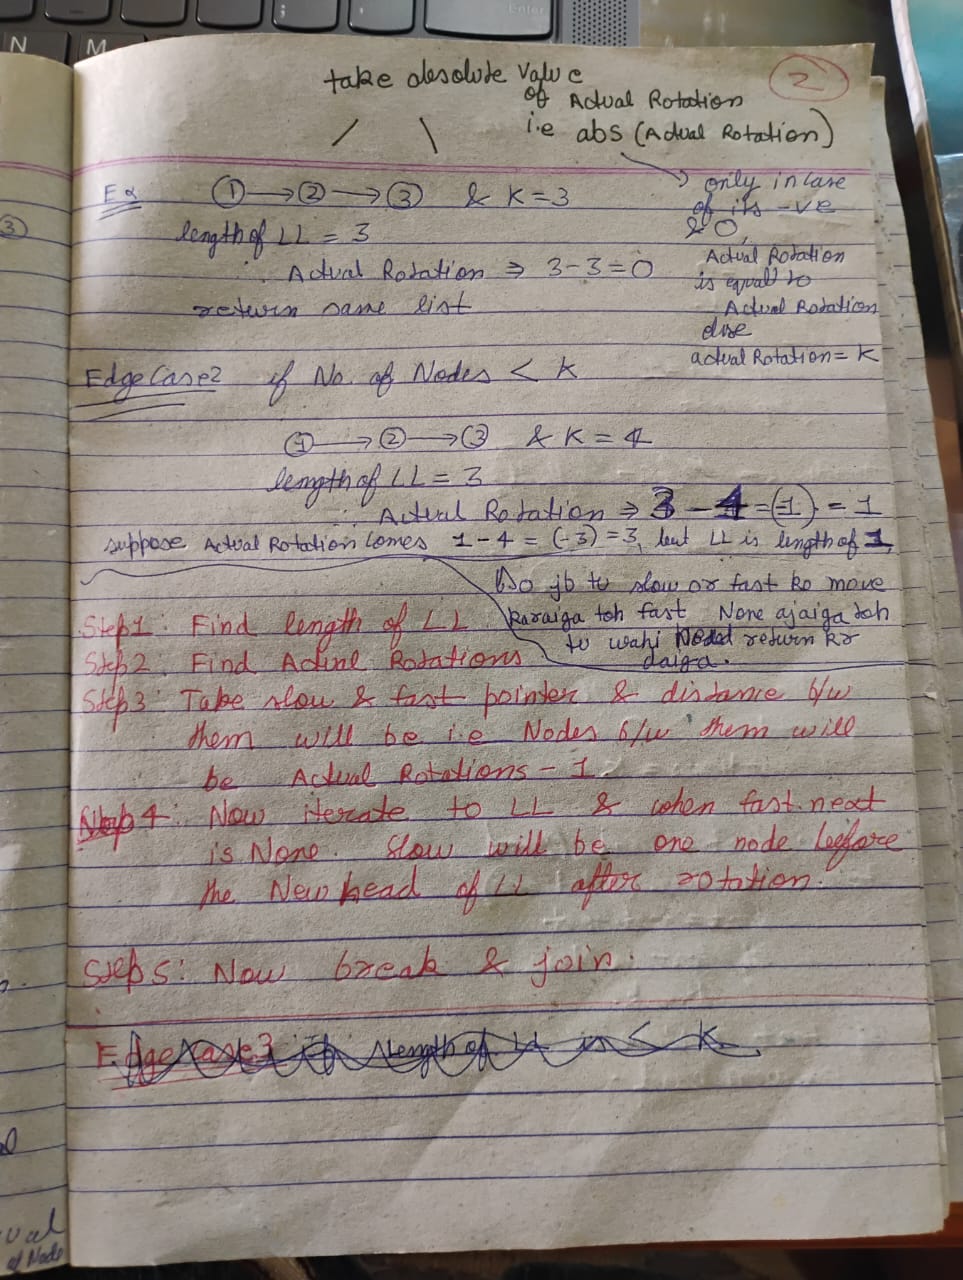 take absolute value
of Actual Rotation
i.e abs (Actual Rotation)
2
only in case
of its -ve
& 0,
Actual Rotation
is equal to
Actual Rotation
else
actual Rotation = K
Ex ① → ② → ③ & K = 3
length of LL = 3
∴ Actual Rotation ⇒ 3 - 3 = 0
return same list
Edge Case 2 if No. of Nodes < K
① → ② → ③ & K = 4
length of LL = 3
∴ Actual Rotation ⇒ 3 - 4 = (-1) = 1
suppose Actual Rotation comes 1 - 4 = (-3) = 3, but LL is length of 1,
So jb tu slow or fast ko move
karaiga toh fast None ajaiga toh
tu wahi Head return kr
daiga.
Step 1: Find length of LL
Step 2: Find Actual Rotations
Step 3: Take slow & fast pointer & distance b/w
them will be i.e Nodes b/w them will
be Actual Rotations - 1.
Step 4: Now iterate to LL & when fast.next
is None. Slow will be one node before
the New head of LL after rotation.
Step 5: Now break & join.
Edge Case 3 if length of LL is < K
3
ual
of Node
N
M
Enter